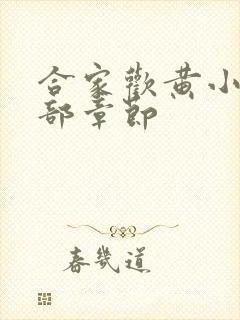 合家歡黃小
部章節
春幾道